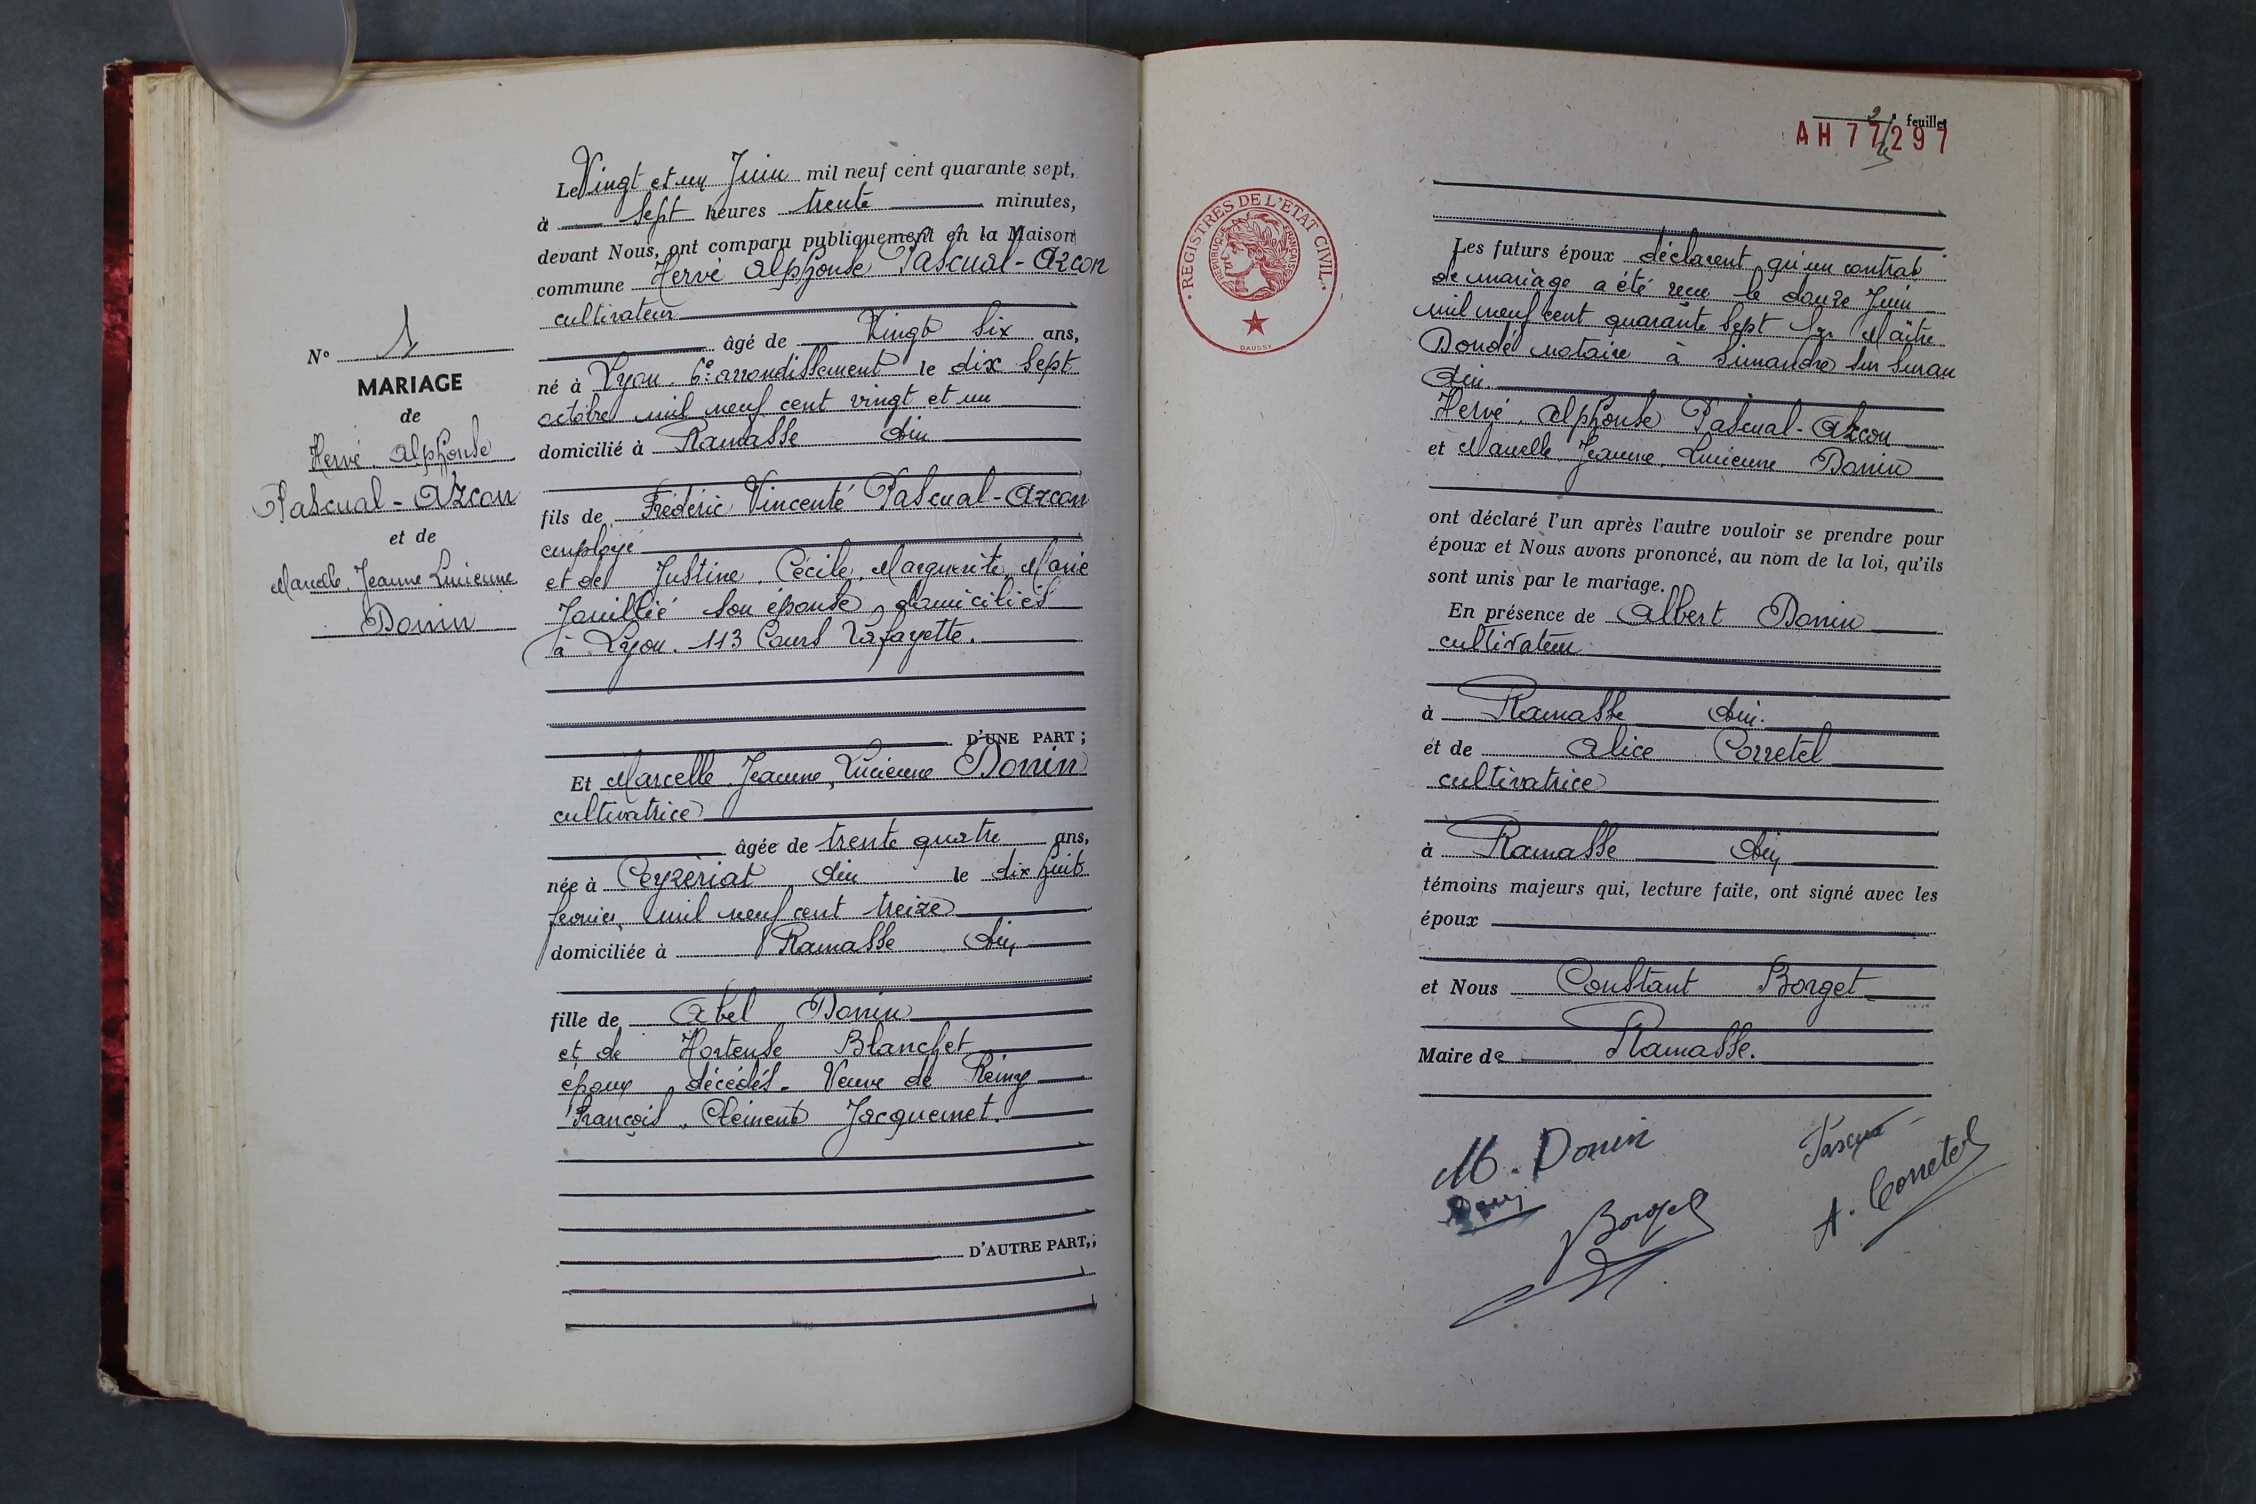 N° 1
MARIAGE
de
Hervé. Alphonse
Pascual-Azcon
et de
Marcelle. Jeanne Lucienne
Donin
Le Vingt et un Juin mil neuf cent quarante sept,
à sept heures trente minutes,
devant Nous, ont comparu publiquement en la Maison
commune Hervé Alphonse Pascual-Azcon
cultivateur
âgé de Vingt six ans,
né à Lyon. 6e arrondissement le dix sept
octobre mil neuf cent vingt et un
domicilié à Ramasse Ain
fils de Frédéric Vincenté Pascual-Azcon
employé
et de Justine. Cécile. Marguerite. Marie
Jouillié son épouse, domiciliés
à Lyon. 113 Cours Lafayette.
D'UNE PART ;
Et Marcelle. Jeanne, Lucienne Donin
cultivatrice
âgée de trente quatre ans,
née à Ceyzériat Ain le dix huit
février mil neuf cent treize
domiciliée à Ramasse Ain
fille de Abel Donin
et de Hortense Blanchet
époux décédés. Veuve de Rémy
François. Clément Jacquemet.
D'AUTRE PART,;
2e feuillet
AH 77297
REGISTRES DE L'ETAT CIVIL
REPUBLIQUE FRANÇAISE
DAUSSY
Les futurs époux déclarent qu'un contrat
de mariage a été reçu le douze Juin
mil neuf cent quarante sept par Maître
Dondé notaire à Simandre sur Suran
Ain.
Hervé. Alphonse Pascual-Azcon
et Marcelle Jeanne. Lucienne Donin
ont déclaré l'un après l'autre vouloir se prendre pour
époux et Nous avons prononcé, au nom de la loi, qu'ils
sont unis par le mariage.
En présence de Albert Donin
cultivateur
à Ramasse Ain.
et de Alice Corretel
cultivatrice
à Ramasse Ain
témoins majeurs qui, lecture faite, ont signé avec les
époux
et Nous Constant Borget
Maire de Ramasse.
M. Donin
Pascual
Donin
Borget
A. Corretel